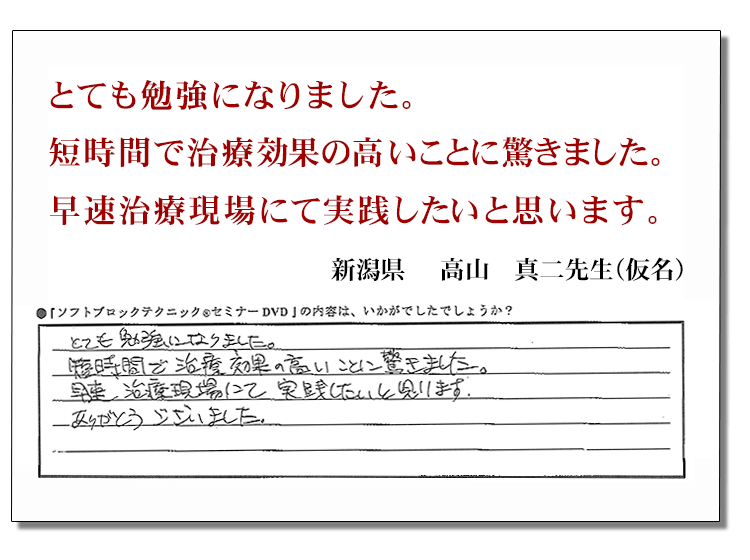 とても勉強になりました。
短時間で治療効果の高いことに驚きました。
早速治療現場にて実践したいと思います。
新潟県 高山 真二先生(仮名)
●『ソフトブロックテクニック®セミナーDVD』の内容は、いかがでしたでしょうか?
とても勉強になりました。
短時間で治療効果の高いことに驚きました。
早速、治療現場にて実践したいと思います。
ありがとうございました。